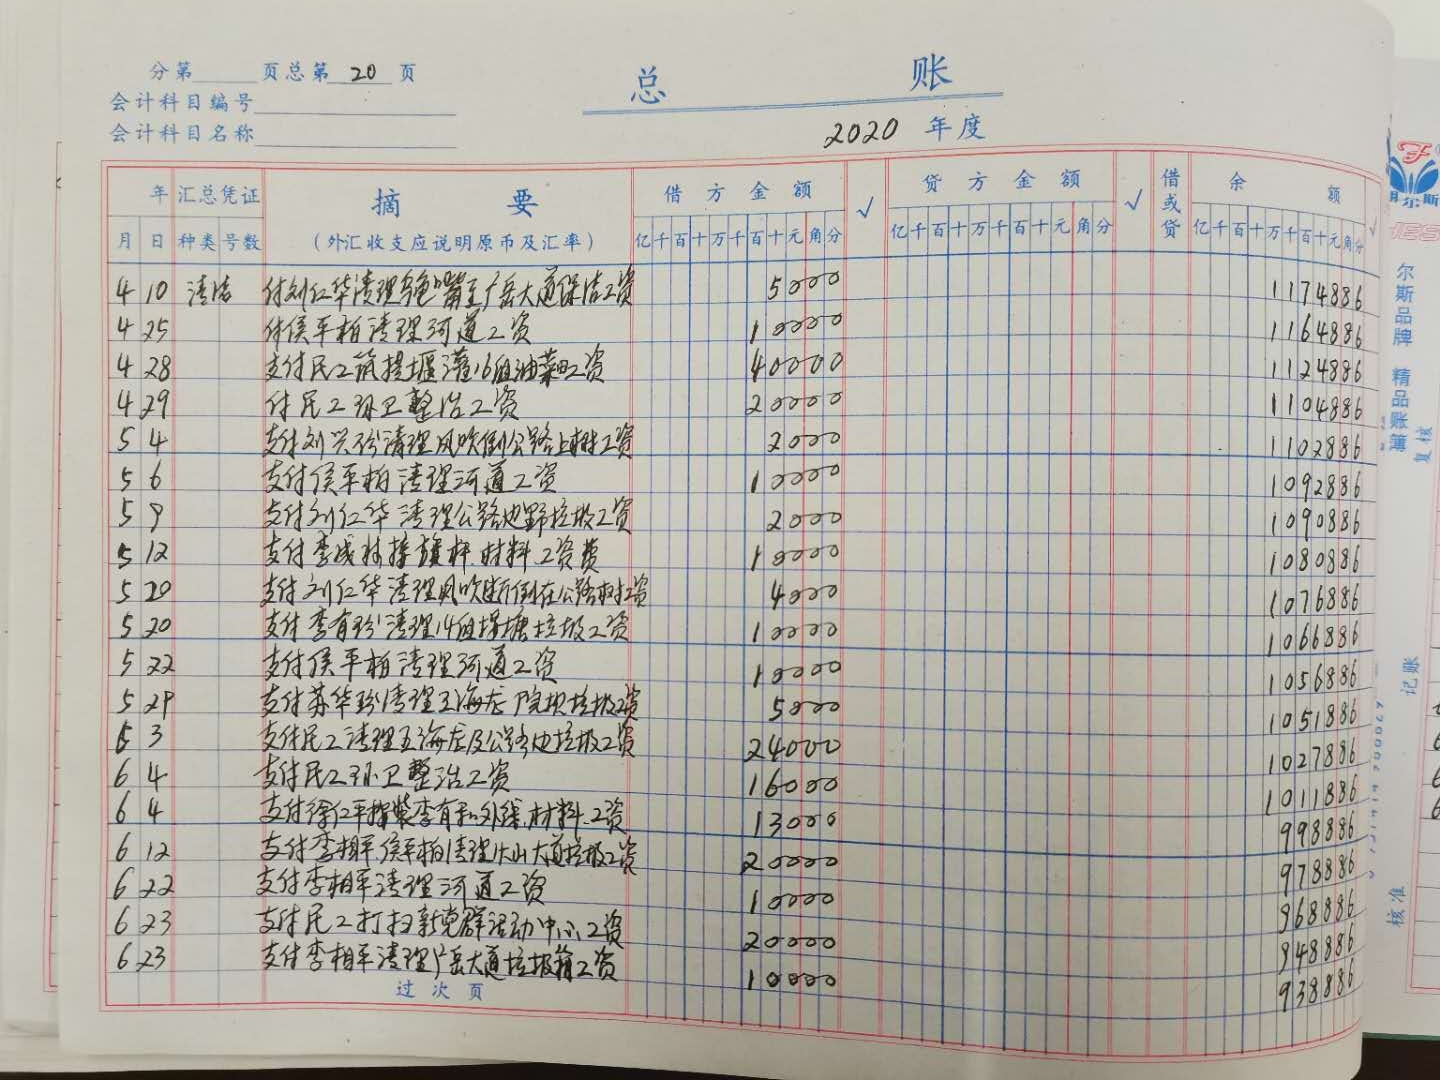 分第 页总第 20 页
会计科目编号
会计科目名称
总 账
2020 年度
年 汇总凭证 摘 要 借方金额 √ 贷方金额 √ 借或贷 余 额 √
月 日 种类 号数 (外汇收支应说明原币及汇率) 亿千百十万千百十元角分 亿千百十万千百十元角分 亿千百十万千百十元角分
4 10 清洁 付刘仁华清理 嘴至广岳大道保洁工资 5000 1174886
4 25 付侯平柏清理河道工资 10000 1164886
4 28 支付民工筑提堰灌16组油菜田工资 40000 1124886
4 29 付民工环卫整治工资 20000 1104886
5 4 支付刘兴珍清理风吹倒公路上树工资 2000 1102886
5 6 支付侯平柏清理河道工资 10000 1092886
5 9 支付刘仁华清理公路边野垃圾工资 2000 1090886
5 12 支付李成林接旗杆.材料.工资费 10000 1080886
5 20 支付刘仁华清理风吹断倒在公路树工资 4000 1076886
5 20 支付李有珍清理14组堰塘垃圾工资 10000 1066886
5 22 支付侯平柏清理河道工资 10000 1056886
5 29 支付苏华珍清理五海庄院坝垃圾工资 5000 1051886
6 3 支付民工清理五海庄及公路边垃圾工资 24000 1027886
6 4 支付民工环卫整治工资 16000 1011886
6 4 支付徐仁平 装李有和外线.材料.工资 13000 998886
6 12 支付李相平侯平柏清理 山大道垃圾工资 20000 978886
6 22 支付李相平清理河道工资 10000 968886
6 23 支付民工打扫新党群活动中心工资 20000 948886
6 23 支付李相平清理广岳大道垃圾箱工资 10000 938886
过次页
尔斯品牌 精品账簿
复核
记账
核准